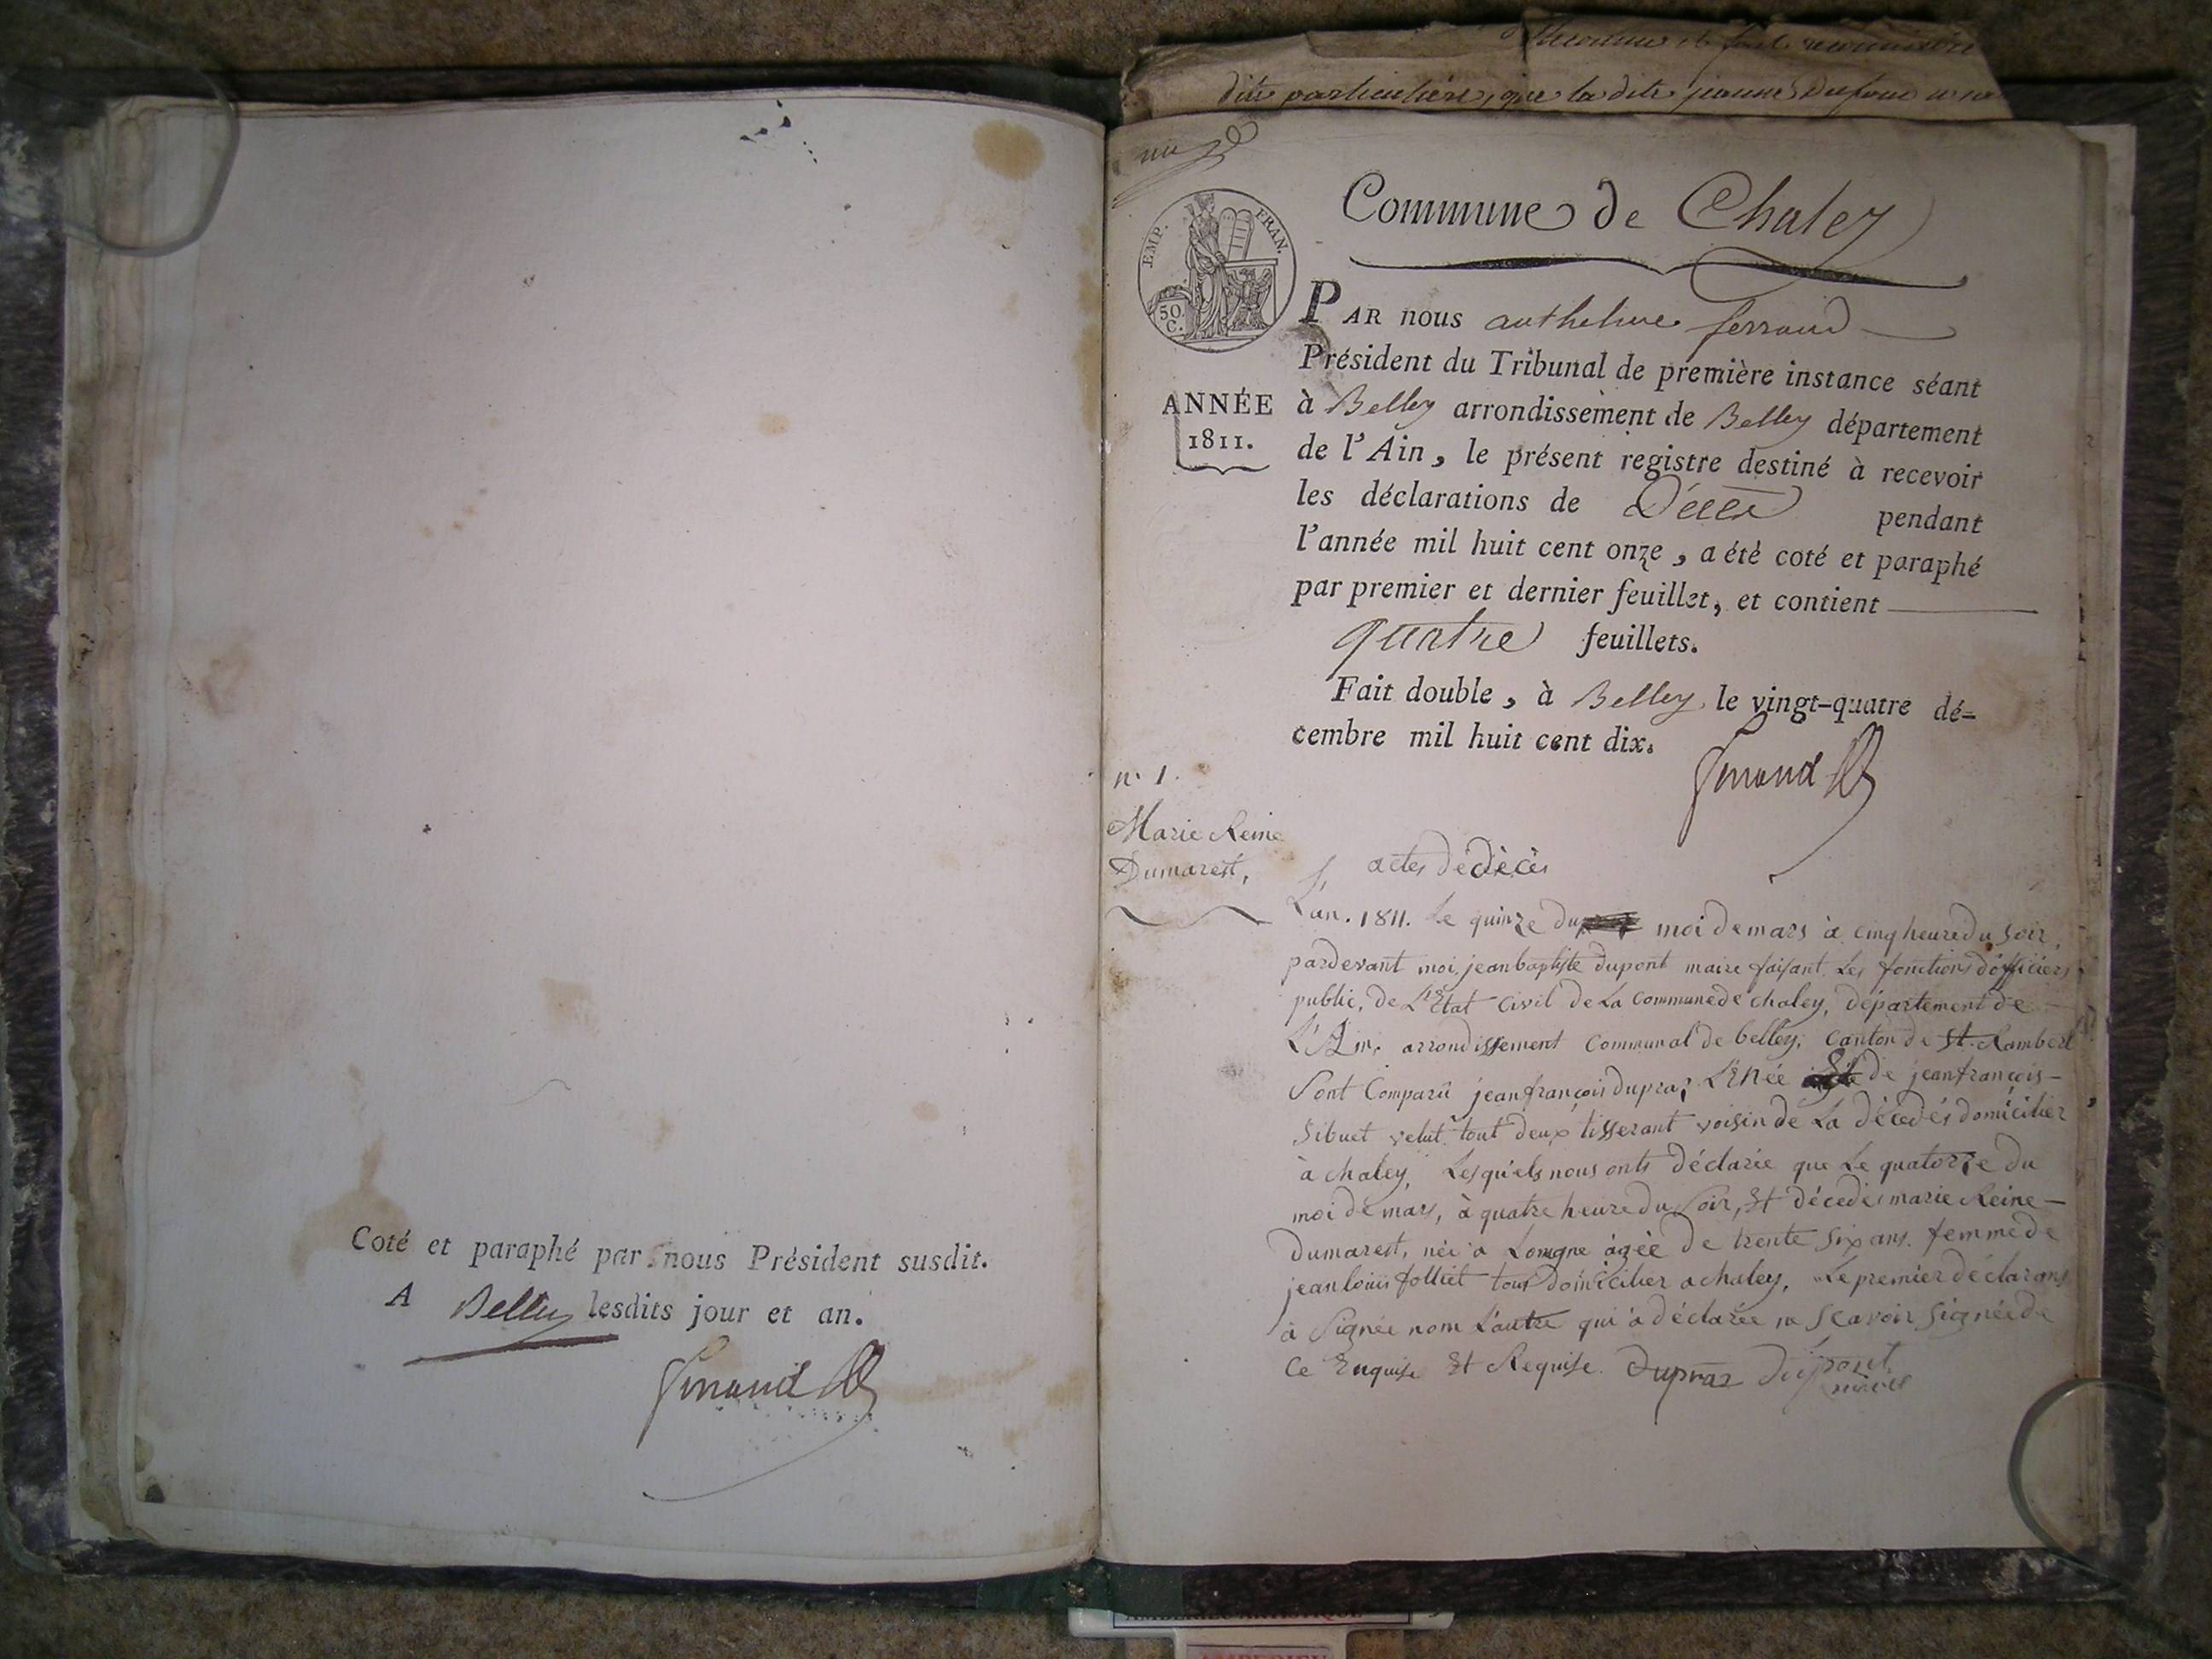 Coté et paraphé par nous Président susdit.
A Belley lesdits jour et an.
dite particuliere, que la dite jeanne
Commune de Chaley
EMP. FRAN.
50 C.
PAR nous anthelme ferrand
Président du Tribunal de première instance séant
ANNÉE
1811.
à Belley arrondissement de Belley département
de l'Ain, le présent registre destiné à recevoir
les déclarations de Décès pendant
l'année mil huit cent onze, a été coté et paraphé
par premier et dernier feuillet, et contient
quatre feuillets.
Fait double, à Belley le vingt-quatre dé-
cembre mil huit cent dix.
n. 1.
Marie Reine
Dumarest,
actes de décès
L'an. 1811. Le quinze du moi de mars à cinq heure du soir,
pardevant moi jean baptiste dupont maire faisant Les fonctions d'officiers
public, de L'Etat Civil de La Commune de chaley, département de
L'Ain, arrondissement Communal de belley, Canton de St. Rambert
Sont Comparû jean françois dupraz L'Enée Et de jean françois-
Sibuet velut tout deux tisserant voisin de La décedés domicilier
à chaley, Lesquels nous onts déclarée que Le quatorze du
moi de mars, à quatre heure du Soir, Et décedés marie Reine-
Dumarest, née à agée de trente six ans. femme de
jean louis folliet tous domicilier a chaley, Le premier déclarans
à Signée nom L'autre qui à déclarée ne Scavoir Signée de
Ce Enquise Et Requise. Dupraz dupont